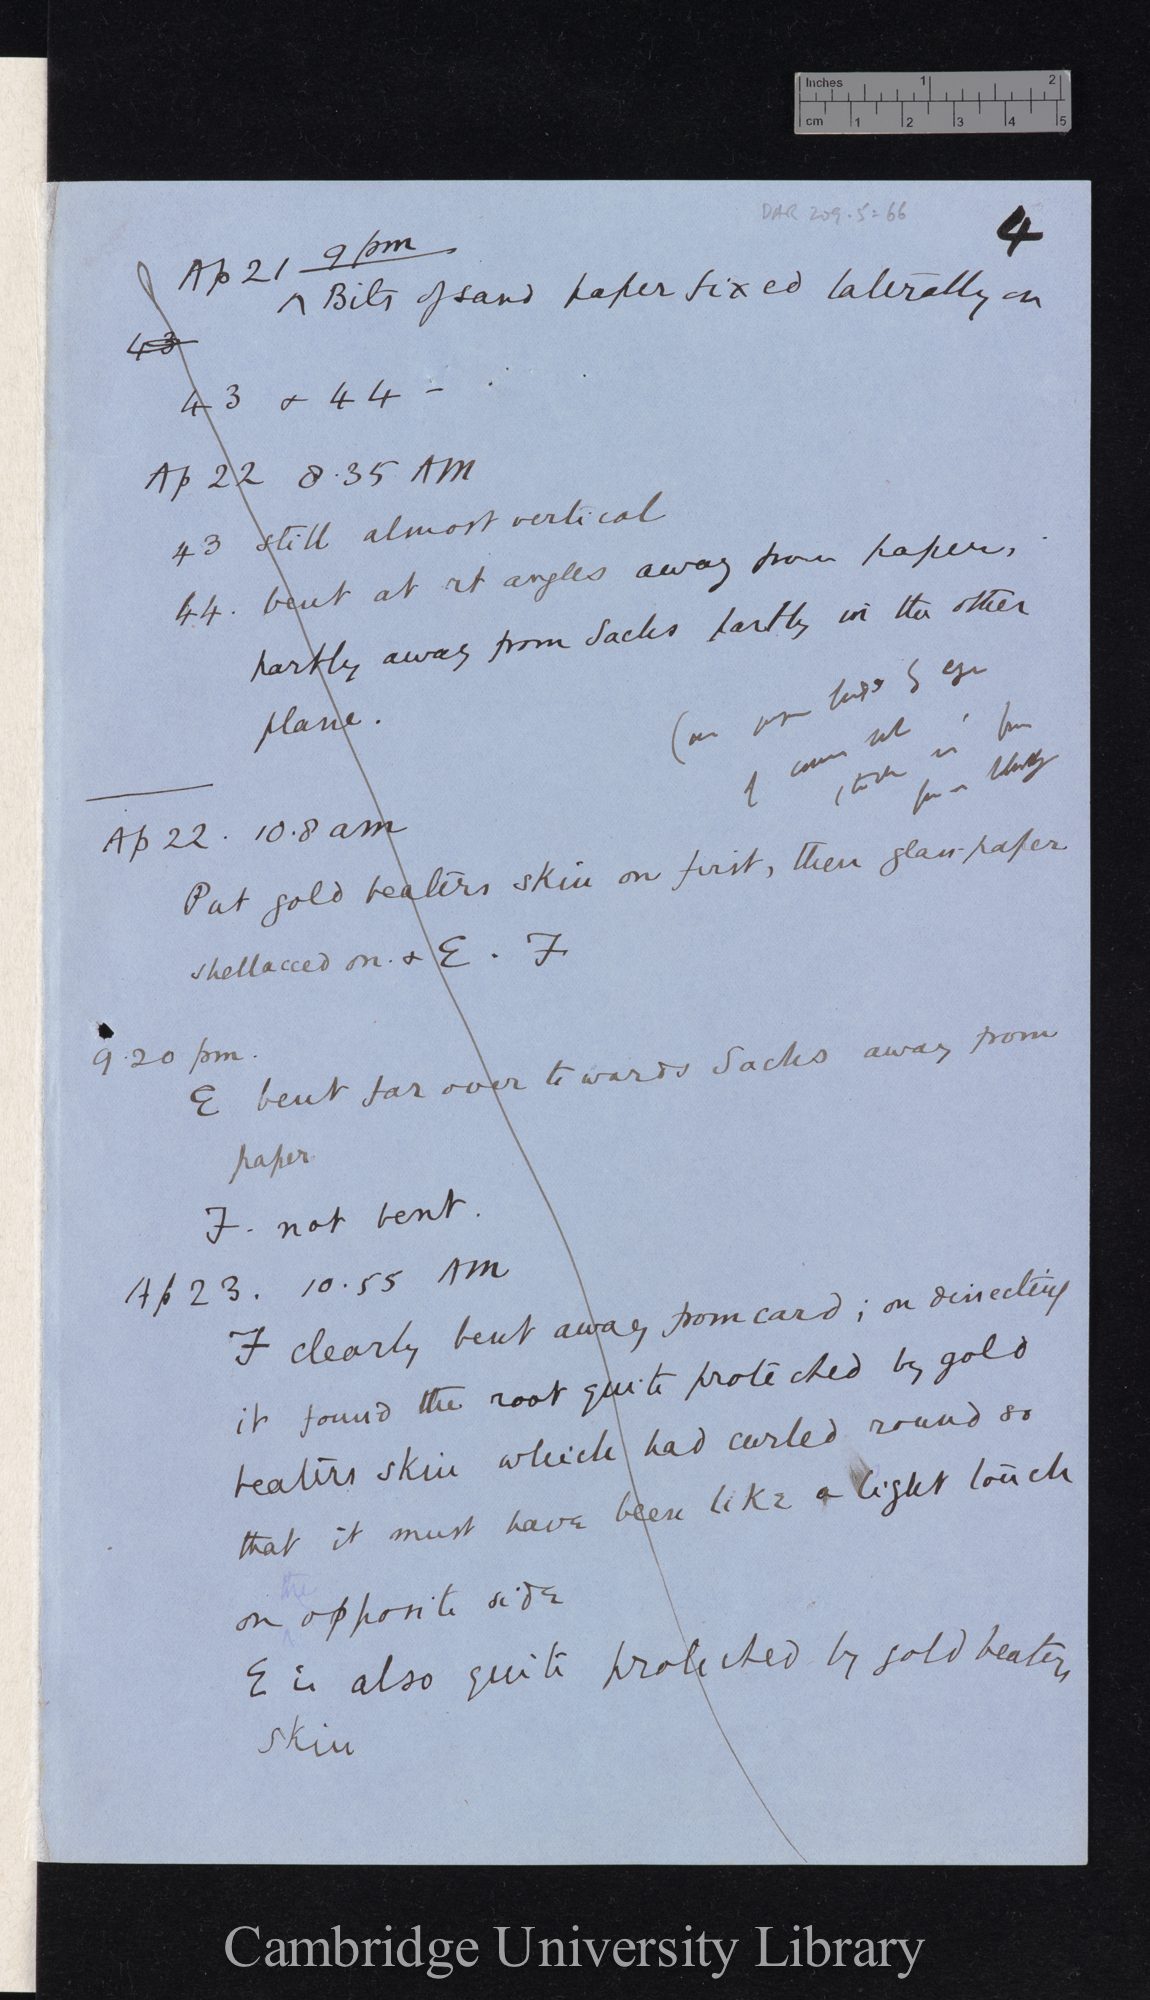 Inches 1 2
cm 1 2 3 4 5
DAR 209.5:66
4
Ap 21 9 pm
^ Bits of sand paper fixed laterally on
43
43 & 44 –
Ap 22 8.35 AM
43 still almost vertical
44. bent at rt angles away from paper,
partly away from Sachs partly in the other
plane.
Ap 22. 10.8 am
Put gold beaters skin on first, then glass-paper
shellacced on. & E. F
9.20 pm.
E bent far over towards Sachs away from
paper
F. not bent.
Ap 23. 10.55 AM
F clearly bent away from card; on dissecting
it found the root quite protected by gold
beaters skin which had curled round so
that it must have been like a light touch
the
on ^ opposite side
E is also quite protected by gold beaters
skin
Cambridge University Library